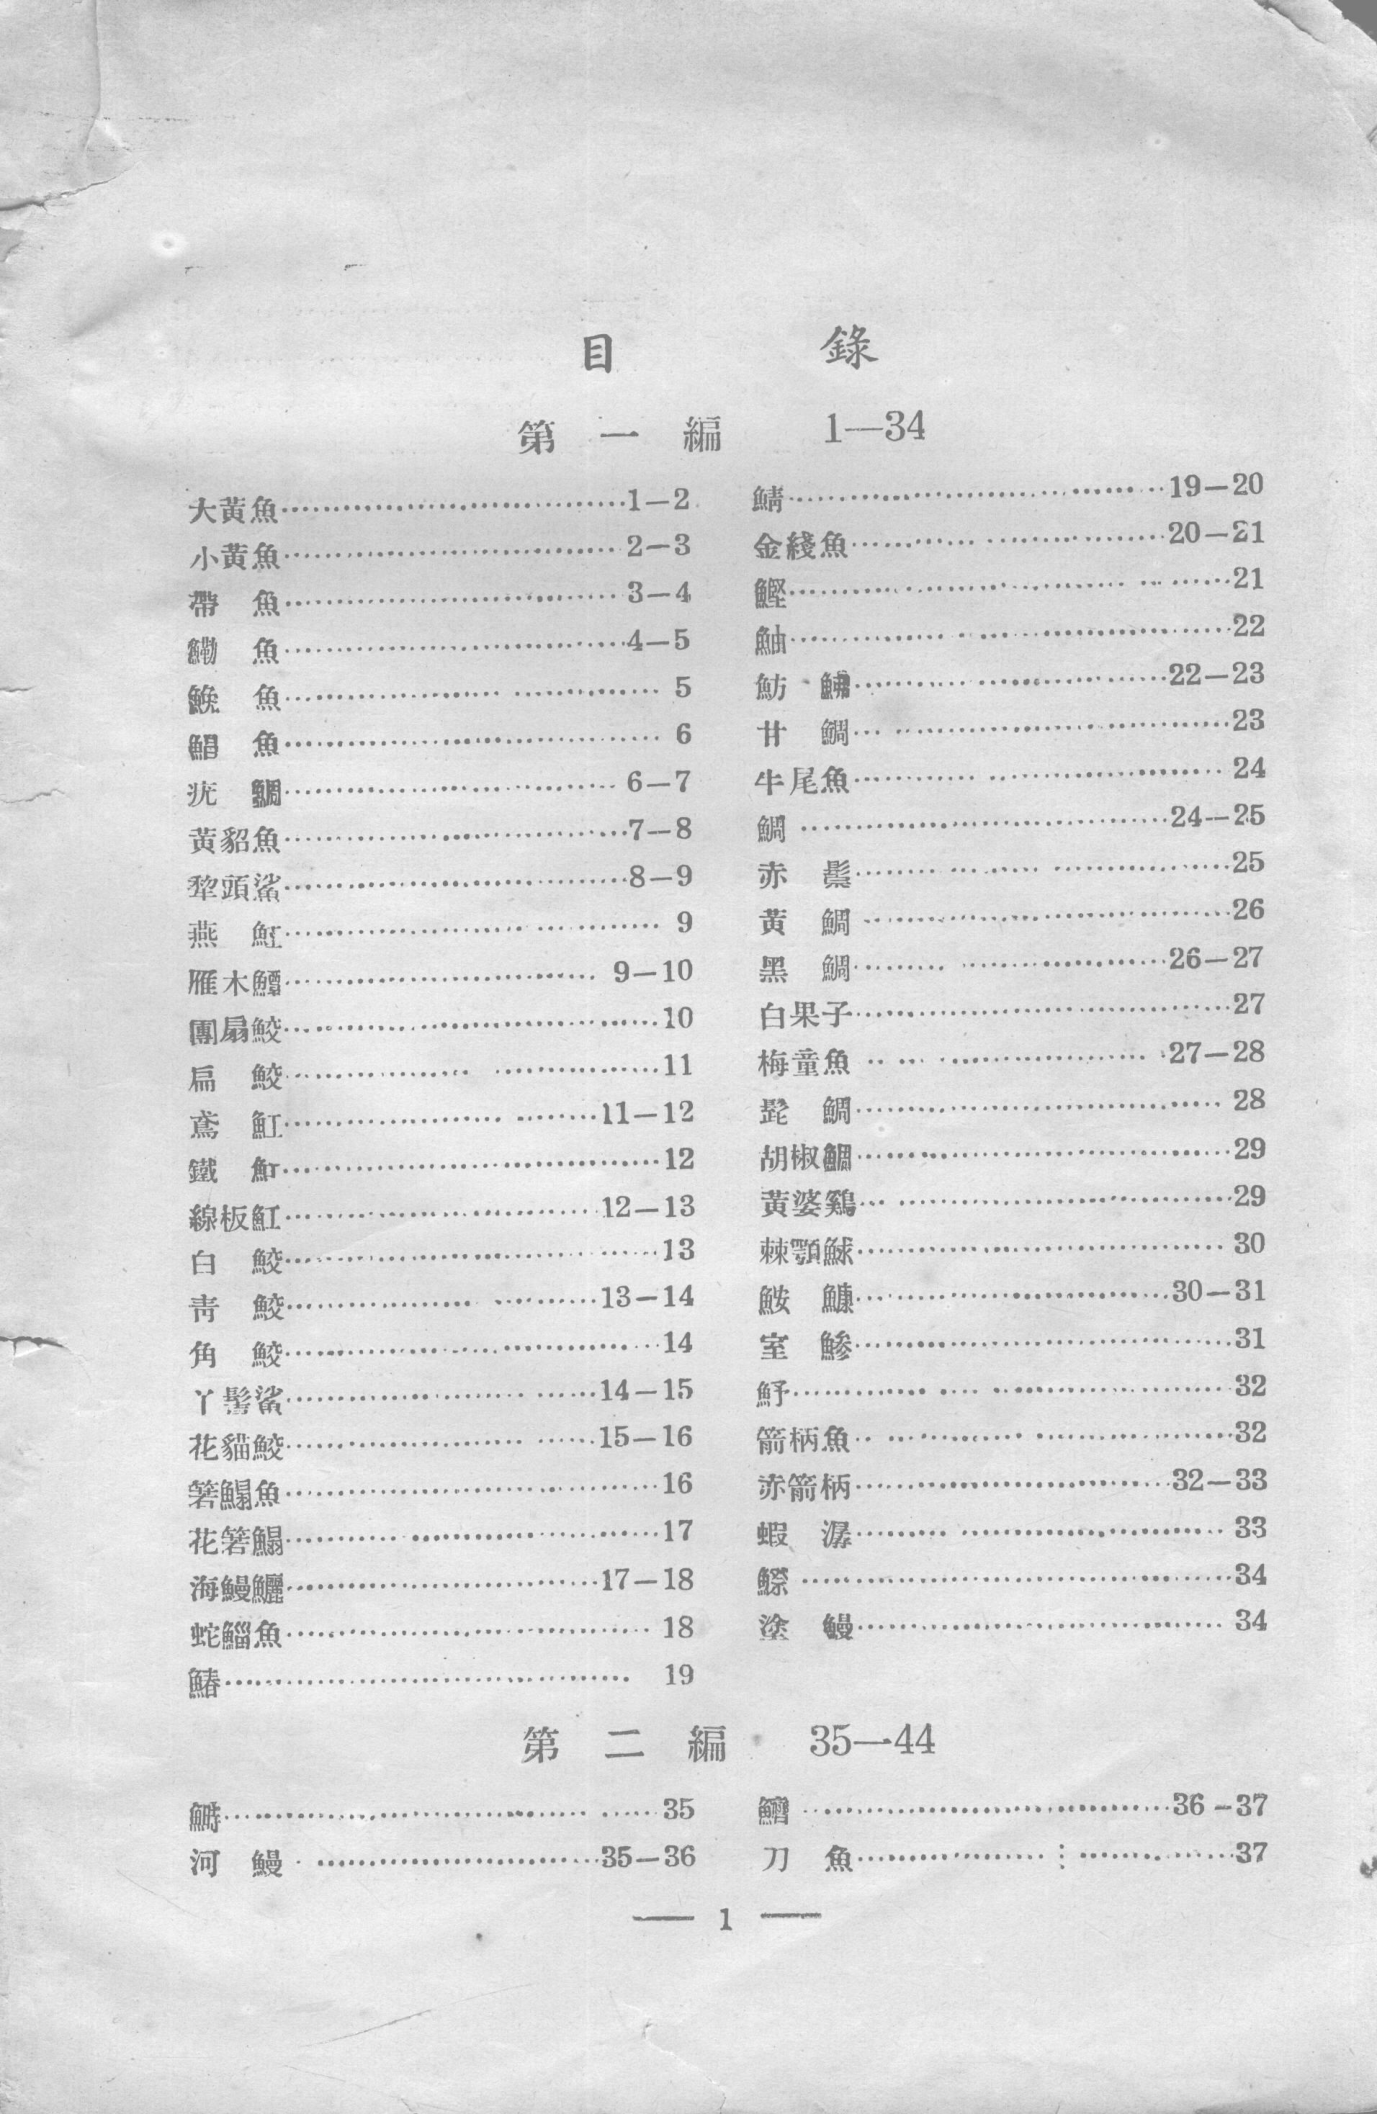 目 錄
第一編 1—34
大黃魚……1—2
小黃魚……2—3
帶魚……3—4
鰳魚……4—5
鮸魚……5
鯧魚……6
疣鯛……6—7
黃貂魚……7—8
犂頭鯊……8—9
燕魟……9
雁木鱏……9—10
團扇鮫……10
扁鮫……11
鳶魟……11—12
鐵魟……12
線板魟……12—13
白鮫……13
靑鮫……13—14
角鮫……14
丫髻鯊……14—15
花貓鮫……15—16
箬鰨魚……16
花箬鰨……17
海鰻鱺……17—18
蛇鯔魚……18
鰆……19
鯖……19—20
金綫魚……20—21
鰹……21
鮋……22
魴鮄……22—23
甘鯛……23
牛尾魚……24
鯛……24—25
赤鬃……25
黃鯛……26
黑鯛……26—27
白果子……27
梅童魚……27—28
髭鯛……28
胡椒鯛……29
黃婆鷄……29
棘顎鮛……30
鮟鱇……30—31
室鰺……31
魣……32
箭柄魚……32
赤箭柄……32—33
蝦潺……33
鰶……34
塗鰻……34
第二編 35—44
鰣……35
河鰻……35—36
鱛……36—37
刀魚……37
— 1 —